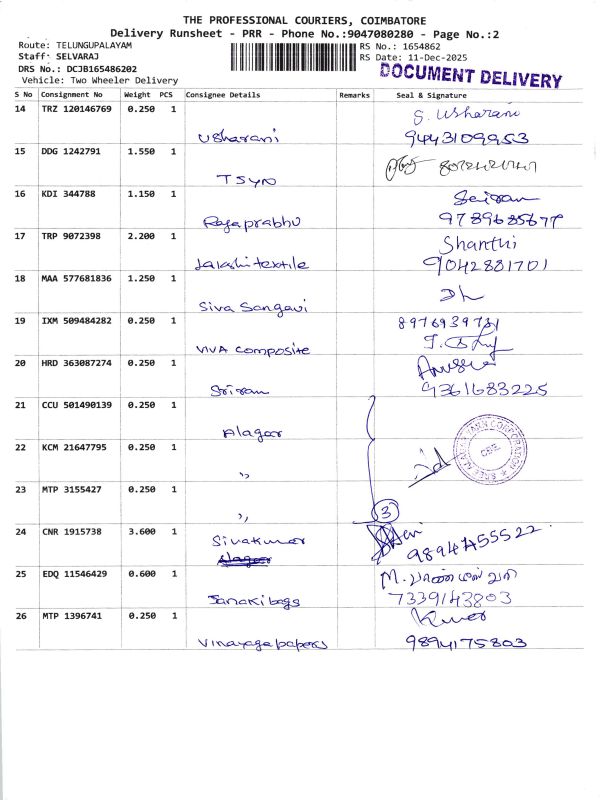 THE PROFESSIONAL COURIERS, COIMBATORE
Delivery Runsheet - PRR - Phone No.:9047080280 - Page No.:2
Route: TELUNGUPALAYAM
RS No.: 1654862
Staff: SELVARAJ
RS Date: 11-Dec-2025
DRS No.: DCJB165486202
DOCUMENT DELIVERY
Vehicle: Two Wheeler Delivery
S No Consignment No Weight PCS Consignee Details Remarks Seal & Signature
14 TRZ 120146769 0.250 1 G. Usharani
Usharani 9443109953
15 DDG 1242791 1.550 1
TSYN
16 KDI 344788 1.150 1
Rajaprabhu 9789685677
17 TRP 9072398 2.200 1 Shanthi
Jalakshi textile 9042881701
18 MAA 577681836 1.250 1
Siva Sangavi
19 IXM 509484282 0.250 1 8976939731
VIVA composite
20 HRD 363087274 0.250 1
Sriram 9361683225
21 CCU 501490139 0.250 1
Alagar
22 KCM 21647795 0.250 1
"
SREE ALAGAR YARN CORPORATION
CBE.
23 MTP 3155427 0.250 1
" 3
24 CNR 1915738 3.600 1
Sivakumar 9894755522
25 EDQ 11546429 0.600 1
Janaki bags 7339143803
26 MTP 1396741 0.250 1 Kumar
Vinayaga papers 9894175803